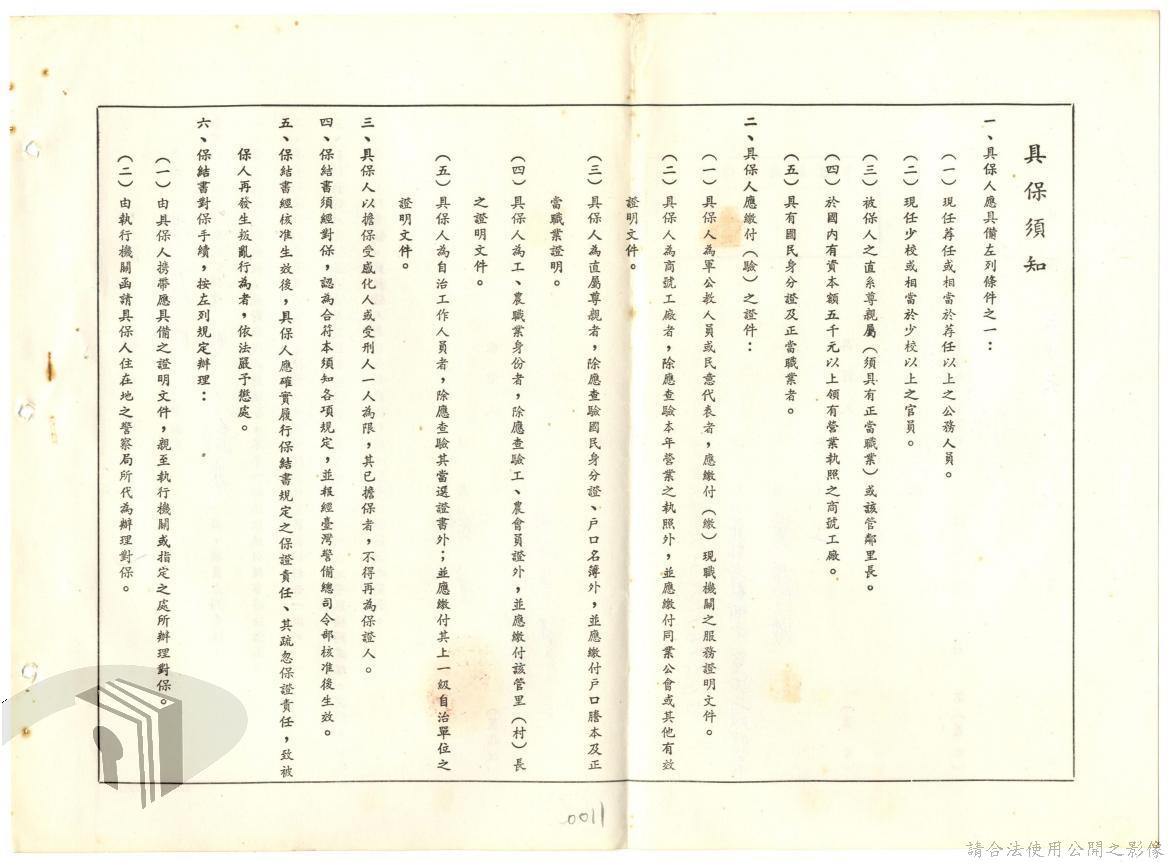 具保須知
一、具保人應具備左列條件之一：
（一）現任荐任或相當於荐任以上之公務人員。
（二）現任少校或相當於少校以上之官員。
（三）被保人之直系尊親屬（須具有正當職業）或該管鄰里長。
（四）於國內有資本額五千元以上領有營業執照之商號工廠。
（五）具有國民身分證及正當職業者。
二、具保人應繳付（驗）之證件：
（一）具保人為軍公教人員或民意代表者，應繳付（繳）現職機關之服務證明文件。
（二）具保人為商號工廠者，除應查驗本年營業之執照外，並應繳付同業公會或其他有效
證明文件。
（三）具保人為直屬尊親者，除應查驗國民身分證、戶口名簿外，並應繳付戶口謄本及正
當職業證明。
（四）具保人為工、農職業身份者，除應查驗工、農會員證外，並應繳付該管里（村）長
之證明文件。
（五）具保人為自治工作人員者，除應查驗其當選證書外；並應繳付其上一級自治單位之
證明文件。
三、具保人以擔保受感化人或受刑人一人為限，其已擔保者，不得再為保證人。
四、保結書須經對保，認為合符本須知各項規定，並報經臺灣警備總司令部核准後生效。
五、保結書經核准生效後，具保人應確實履行保結書規定之保證責任、其疏忽保證責任，致被
保人再發生叛亂行為者，依法嚴予懲處。
六、保結書對保手續，按左列規定辦理：
（一）由具保人携帶應具備之證明文件，親至執行機關或指定之處所辦理對保。
（二）由執行機關函請具保人住在地之警察局所代為辦理對保。
0011
請合法使用公開之影像